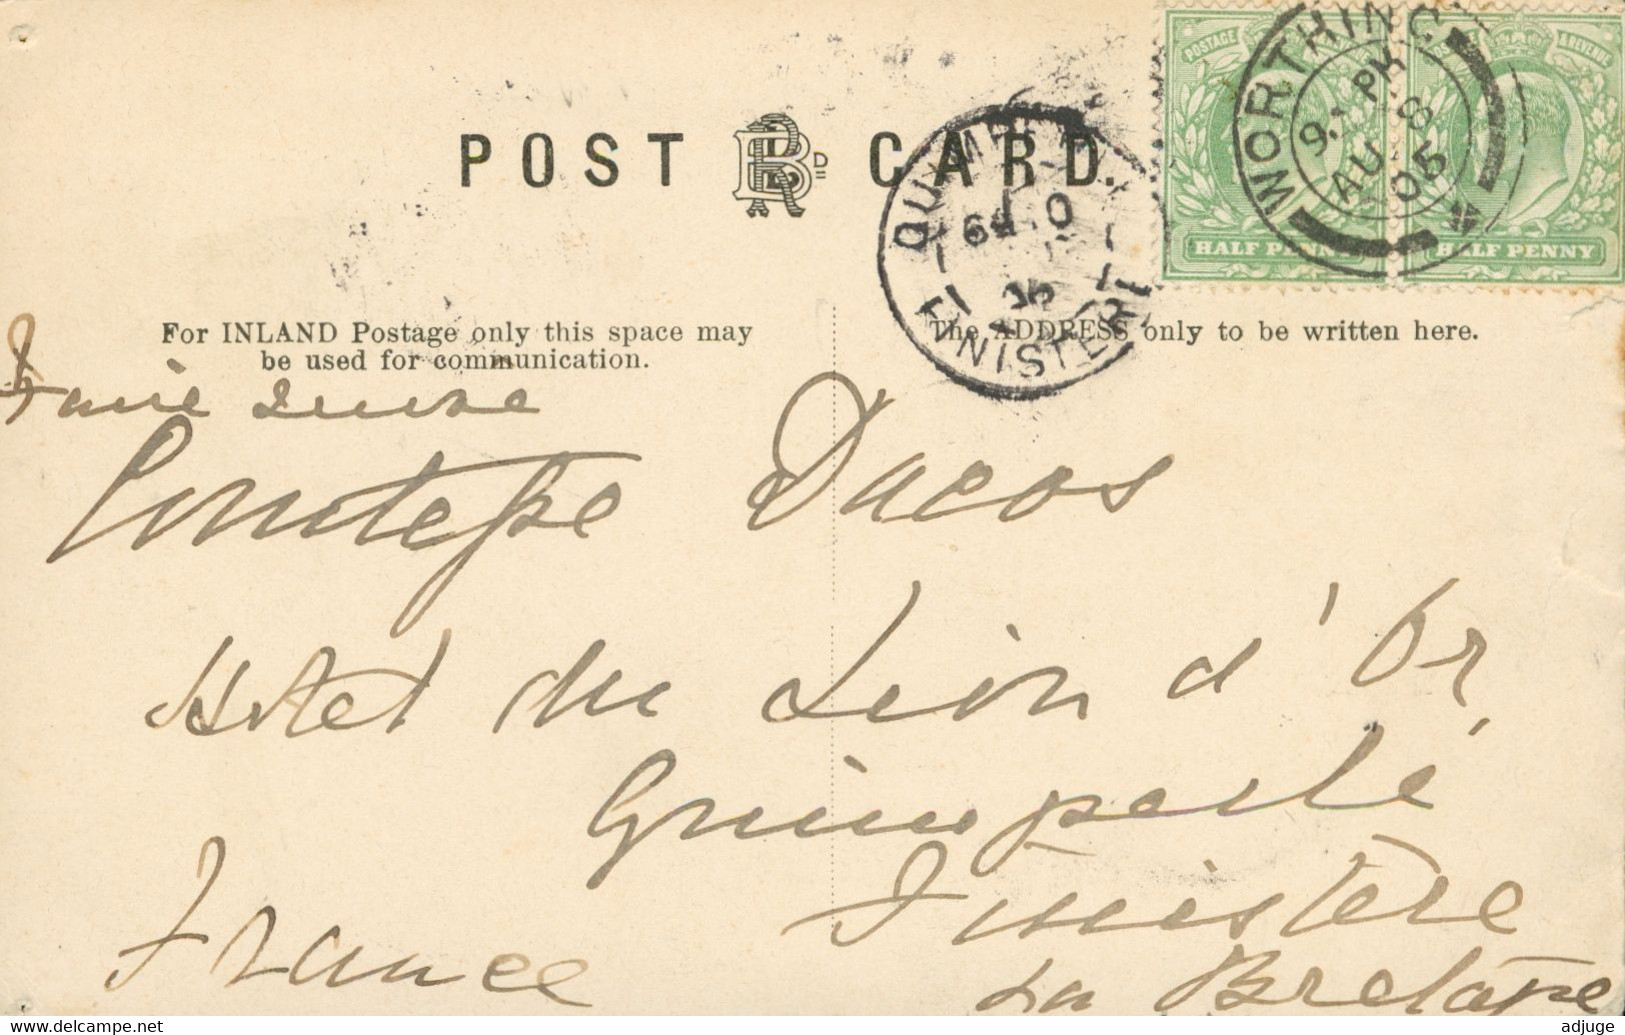 POST CARD.
For INLAND Postage only this space may
be used for communication.
The ADDRESS only to be written here.
POSTAGE & REVENUE
HALF PENNY
POSTAGE & REVENUE
HALF PENNY
WORTHING
9. PM
AU 8
05
QUIMPERLE
10
05
FINISTERE
Faire suivre
Comtesse Ducos
Hotel du Lion d'Or,
Quimperlé
Finistère
France
La Bretagne
adjuge